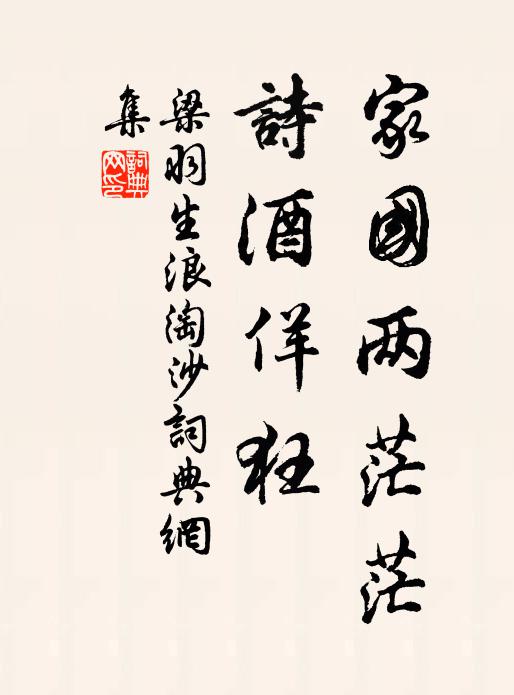 家國两茫茫
詩酒佯狂
梁羽生浪淘沙詞典網
集
詞典
网印